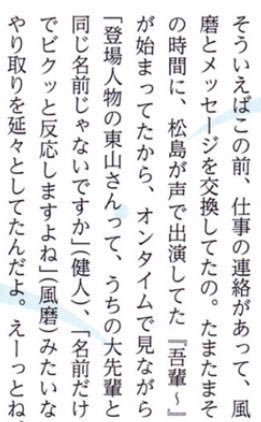 そういえばこの前、仕事の連絡があって、風
磨とメッセージを交換してたの。たまたまそ
の時間に、松島が声で出演してた『吾輩〜』
が始まってたから、オンタイムで見ながら
「登場人物の東山さんって、うちの大先輩と
同じ名前じゃないですか」(健人)、「名前だけ
でビクッと反応しますよね」(風磨)みたいな
やり取りを延々としてたんだよ。えーっとね。